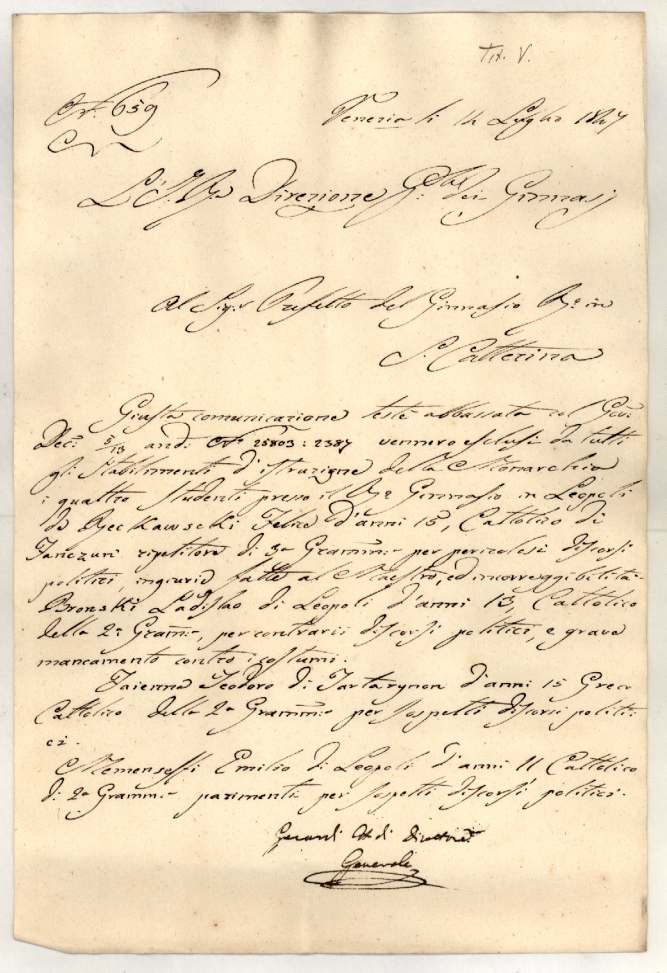 Tit. V.
N.º 659
Venezia li 14 Luglio 1847
L'I. R. Direzione G.le dei Ginnasj
Al Sig.r Prefetto del Ginnasio R.º in
S. Catterina
Giusta comunicazione testè abbassata col Gov:
Dec.º 5/13 and: N.º 25803:2387 vennero esclusi da tutti
gli Stabilimenti d'istruzione della Monarchia
i quattro studenti presso il R.º Ginnasio in Leopoli
Felice d'anni 15, Cattolico di
ripetitore di 3a Gramm.e per pericolosi discorsi
politici, ingiurie fatte al Maestro, ed incorreggibilità.
Bronski Ladislao di Leopoli d'anni 13, Cattolico
della 2a Gramm.e, per contrarii discorsi politici, e grave
mancamento contro i costumi.
Teodoro di d'anni 15 Greco
Cattolico della 2a Gramm.e per sospetti discorsi politi-
ci.
Emilio di Leopoli d'anni 11 Cattolico
di 2a Gramm.e parimenti per sospetti discorsi politici.
Generale